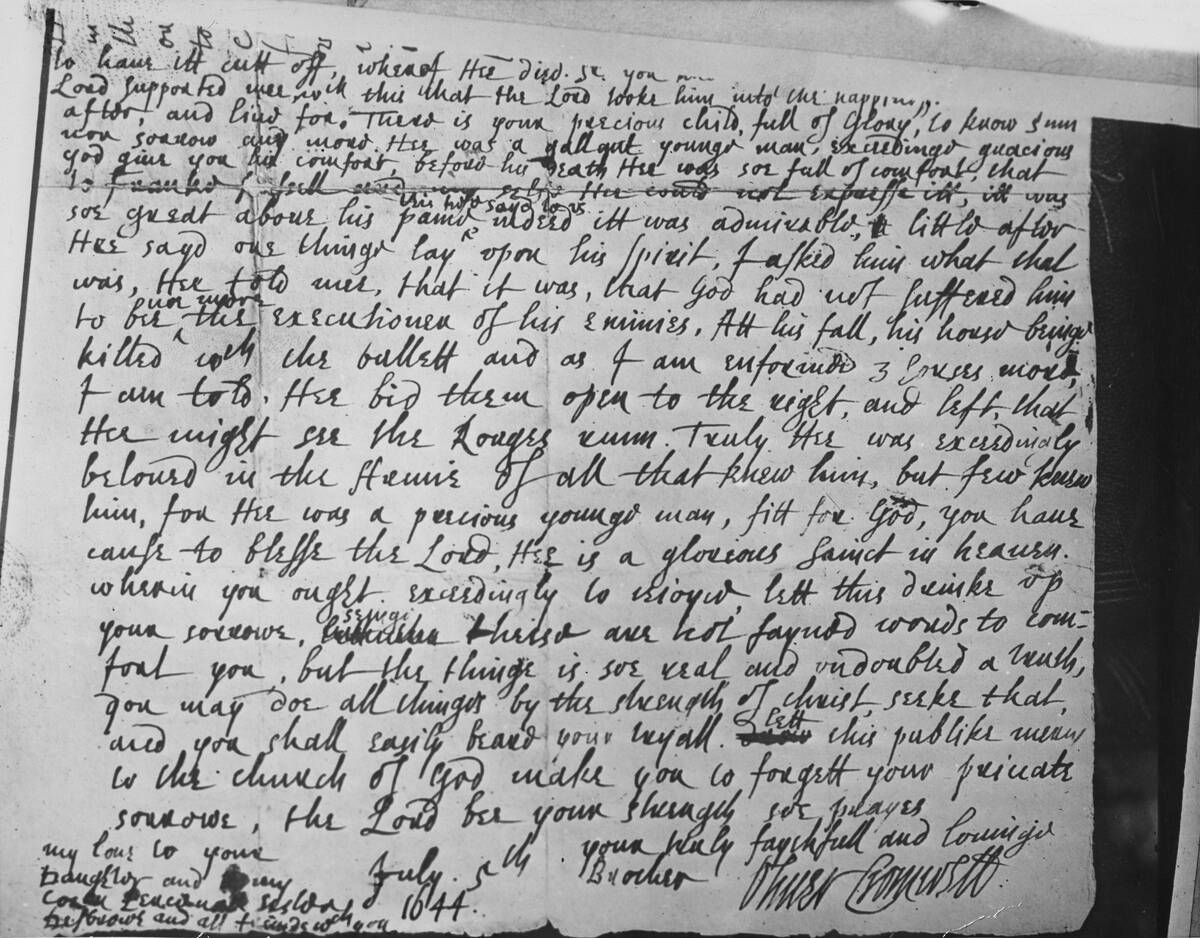 to haue itt cutt off, wherof Hee died. Sr you
Lord supported mee with this that the Lord tooke him into the happinesse
after, and liue for. There is your precious child, full of Glory, to know sinn
nor sorrow any more. Hee was a gallant younge man, exceedinge gracious
God giue you his comfort, before his Death Hee was soe full of comfort, that
to Franke Russell and my selfe Hee could not expresse itt, itt was
soe great aboue his paine, this hee sayd to us indeed itt was admirable, a little after
Hee sayd one thinge lay upon his spirit, I asked him what that
was, Hee told mee, that it was, that God had not suffered him
to bee noe more the executioner of his enimies. Att his fall, his horse beinge
killed wth the bullett and as I am enformed 3 horses more,
I am told. Hee bid them open to the right, and left, that
Hee might see the Rouges runn. Truly Hee was exceedingly
beloued in the Armie of all that knew him, but few knew
him, for Hee was a precious younge man, fitt for God, you haue
cause to blesse the Lord, Hee is a glorious Sainct in heauen.
wherin you ought exceedingly to reioyce, lett this drinke vp
your sorrowe, seinge theise are not fayned words to com-
fort you, but the thinge is soe real and vndoubted a truth,
you may doe all thinges by the strength of christ, seeke that,
and you shall easily beare your tryall. lett this publike mercy
to the church of God make you to forgett your priuate
sorrowe, the Lord bee your strength soe prayes
your truly faythfull and louinge
Brother
Oliuer Cromwell
July 5th
1644
my loue to your
Daughter and my
cozen Perceuall sister
Desbrowe and all frinds wth you